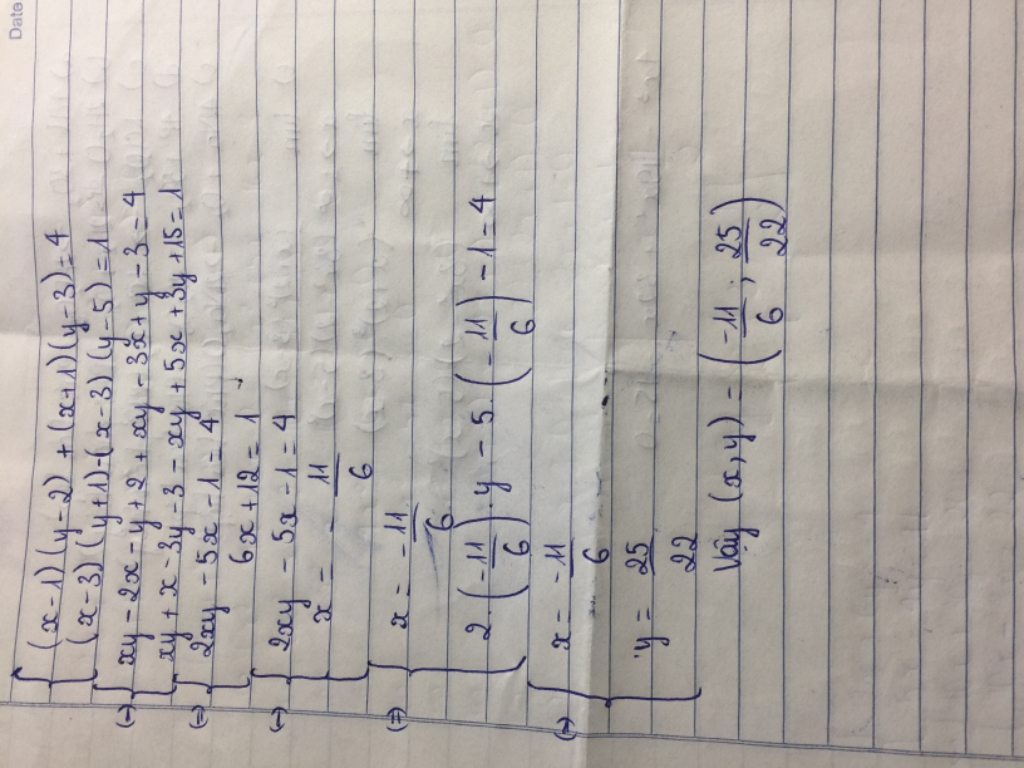 Date
(x-1)(y-2) + (x+1)(y-3) = 4
(x-3)(y+1)-(x-3)(y-5) = 1
(=) xy - 2x - y + 2 + xy - 3x + y - 3 = 4
xy + x - 3y - 3 - xy + 5x + 3y + 15 = 1
(=) 2xy - 5x - 1 = 4
6x + 12 = 1
(=) 2xy - 5x - 1 = 4
x = - 11/6
(=) x = - 11/6
2.(-11/6).y - 5.(-11/6) - 1 = 4
(=) x = -11/6
y = 25/22
Vậy (x,y) = (-11/6 ; 25/22)